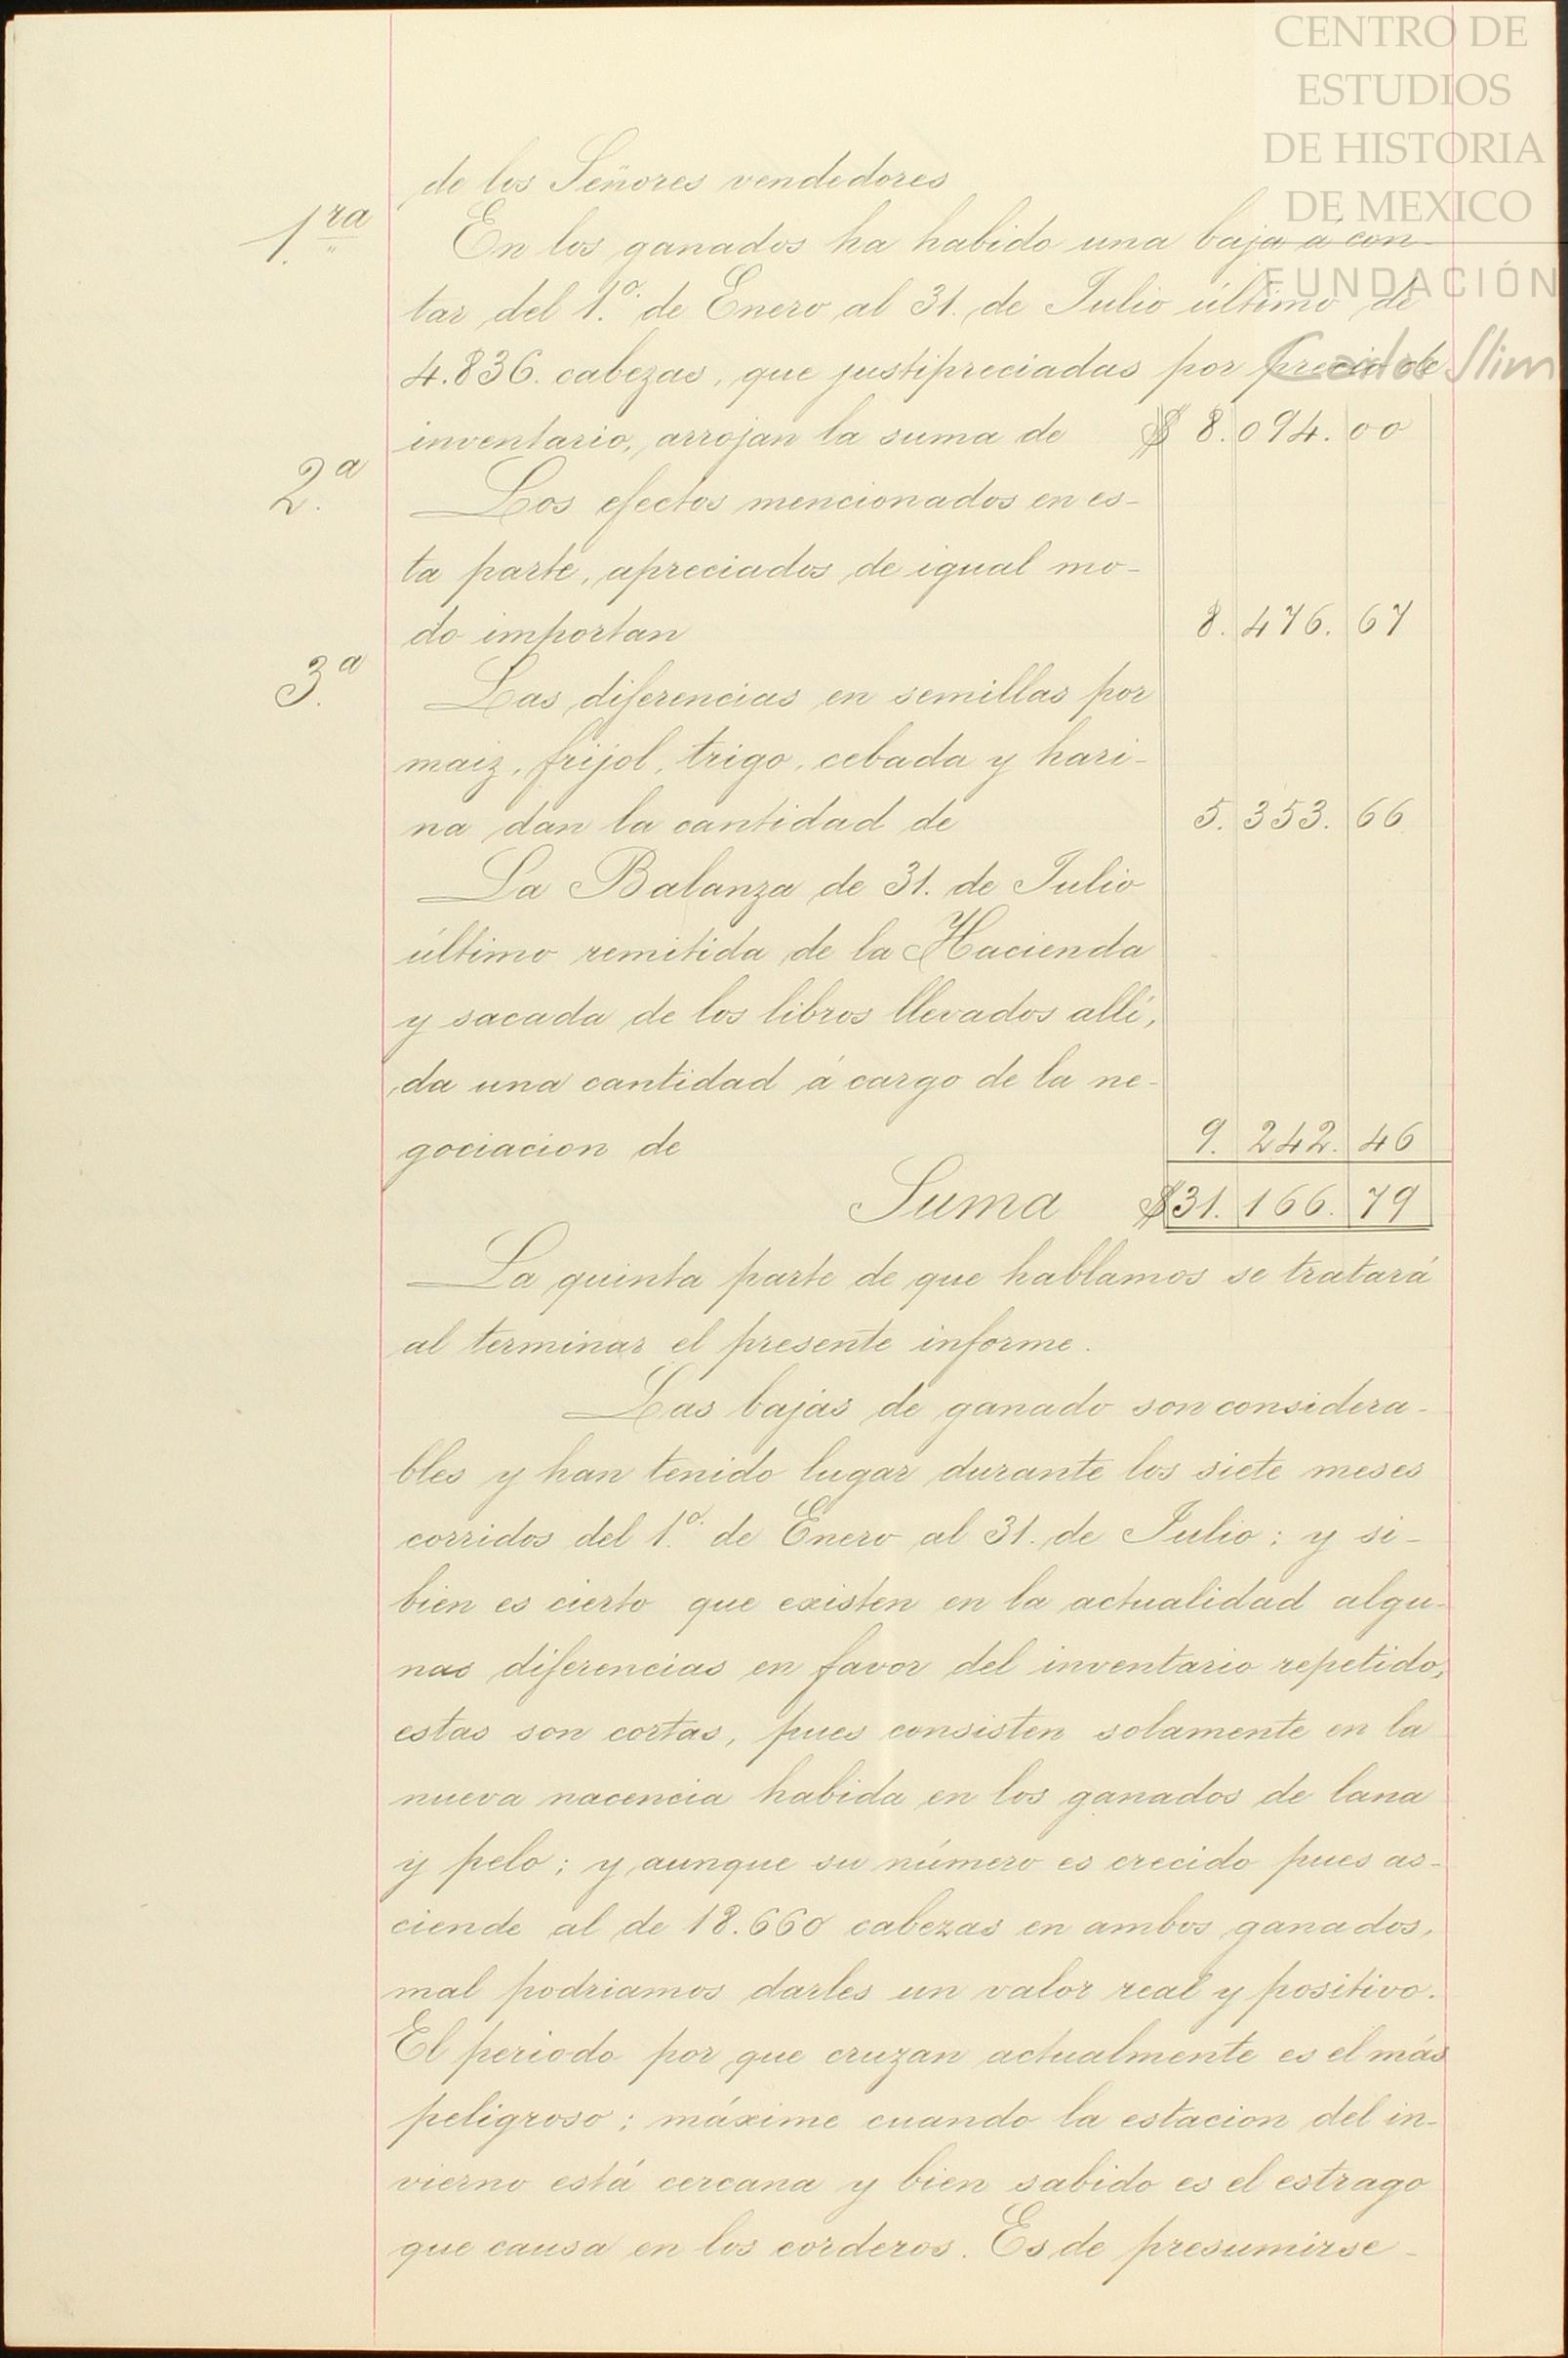 CENTRO DE
ESTUDIOS
DE HISTORIA
DE MEXICO
FUNDACIÓN
Carlos Slim
de los Señores vendedores
1.ra En los ganados ha habido una baja á con-
tar del 1.º de Enero al 31. de Julio último de
4.836. cabezas, que justipreciadas por precio de
inventario, arrojan la suma de $ 8.094.00
2.a Los efectos mencionados en es-
ta parte, apreciados de igual mo-
do importan 8.476.67
3.a Las diferencias en semillas por
maiz, frijol, trigo, cebada y hari-
na dan la cantidad de 5.353.66
La Balanza de 31. de Julio
último remitida de la Hacienda
y sacada de los libros llevados allí,
da una cantidad á cargo de la ne-
gociacion de 9.242.46
Suma $31.166.79
La quinta parte de que hablamos se tratará
al terminar el presente informe.
Las bajas de ganado son considera-
bles y han tenido lugar durante los siete meses
corridos del 1.º de Enero al 31. de Julio; y si-
bien es cierto que existen en la actualidad algu-
nas diferencias en favor del inventario repetido,
estas son cortas, pues consisten solamente en la
nueva nacencia habida en los ganados de lana
y pelo; y aunque su número es crecido pues as-
ciende al de 18.660 cabezas en ambos ganados,
mal podriamos darles un valor real y positivo.
El periodo por que cruzan actualmente es el más
peligroso; máxime cuando la estacion del in-
vierno está cercana y bien sabido es el estrago
que causa en los corderos. Es de presumirse-